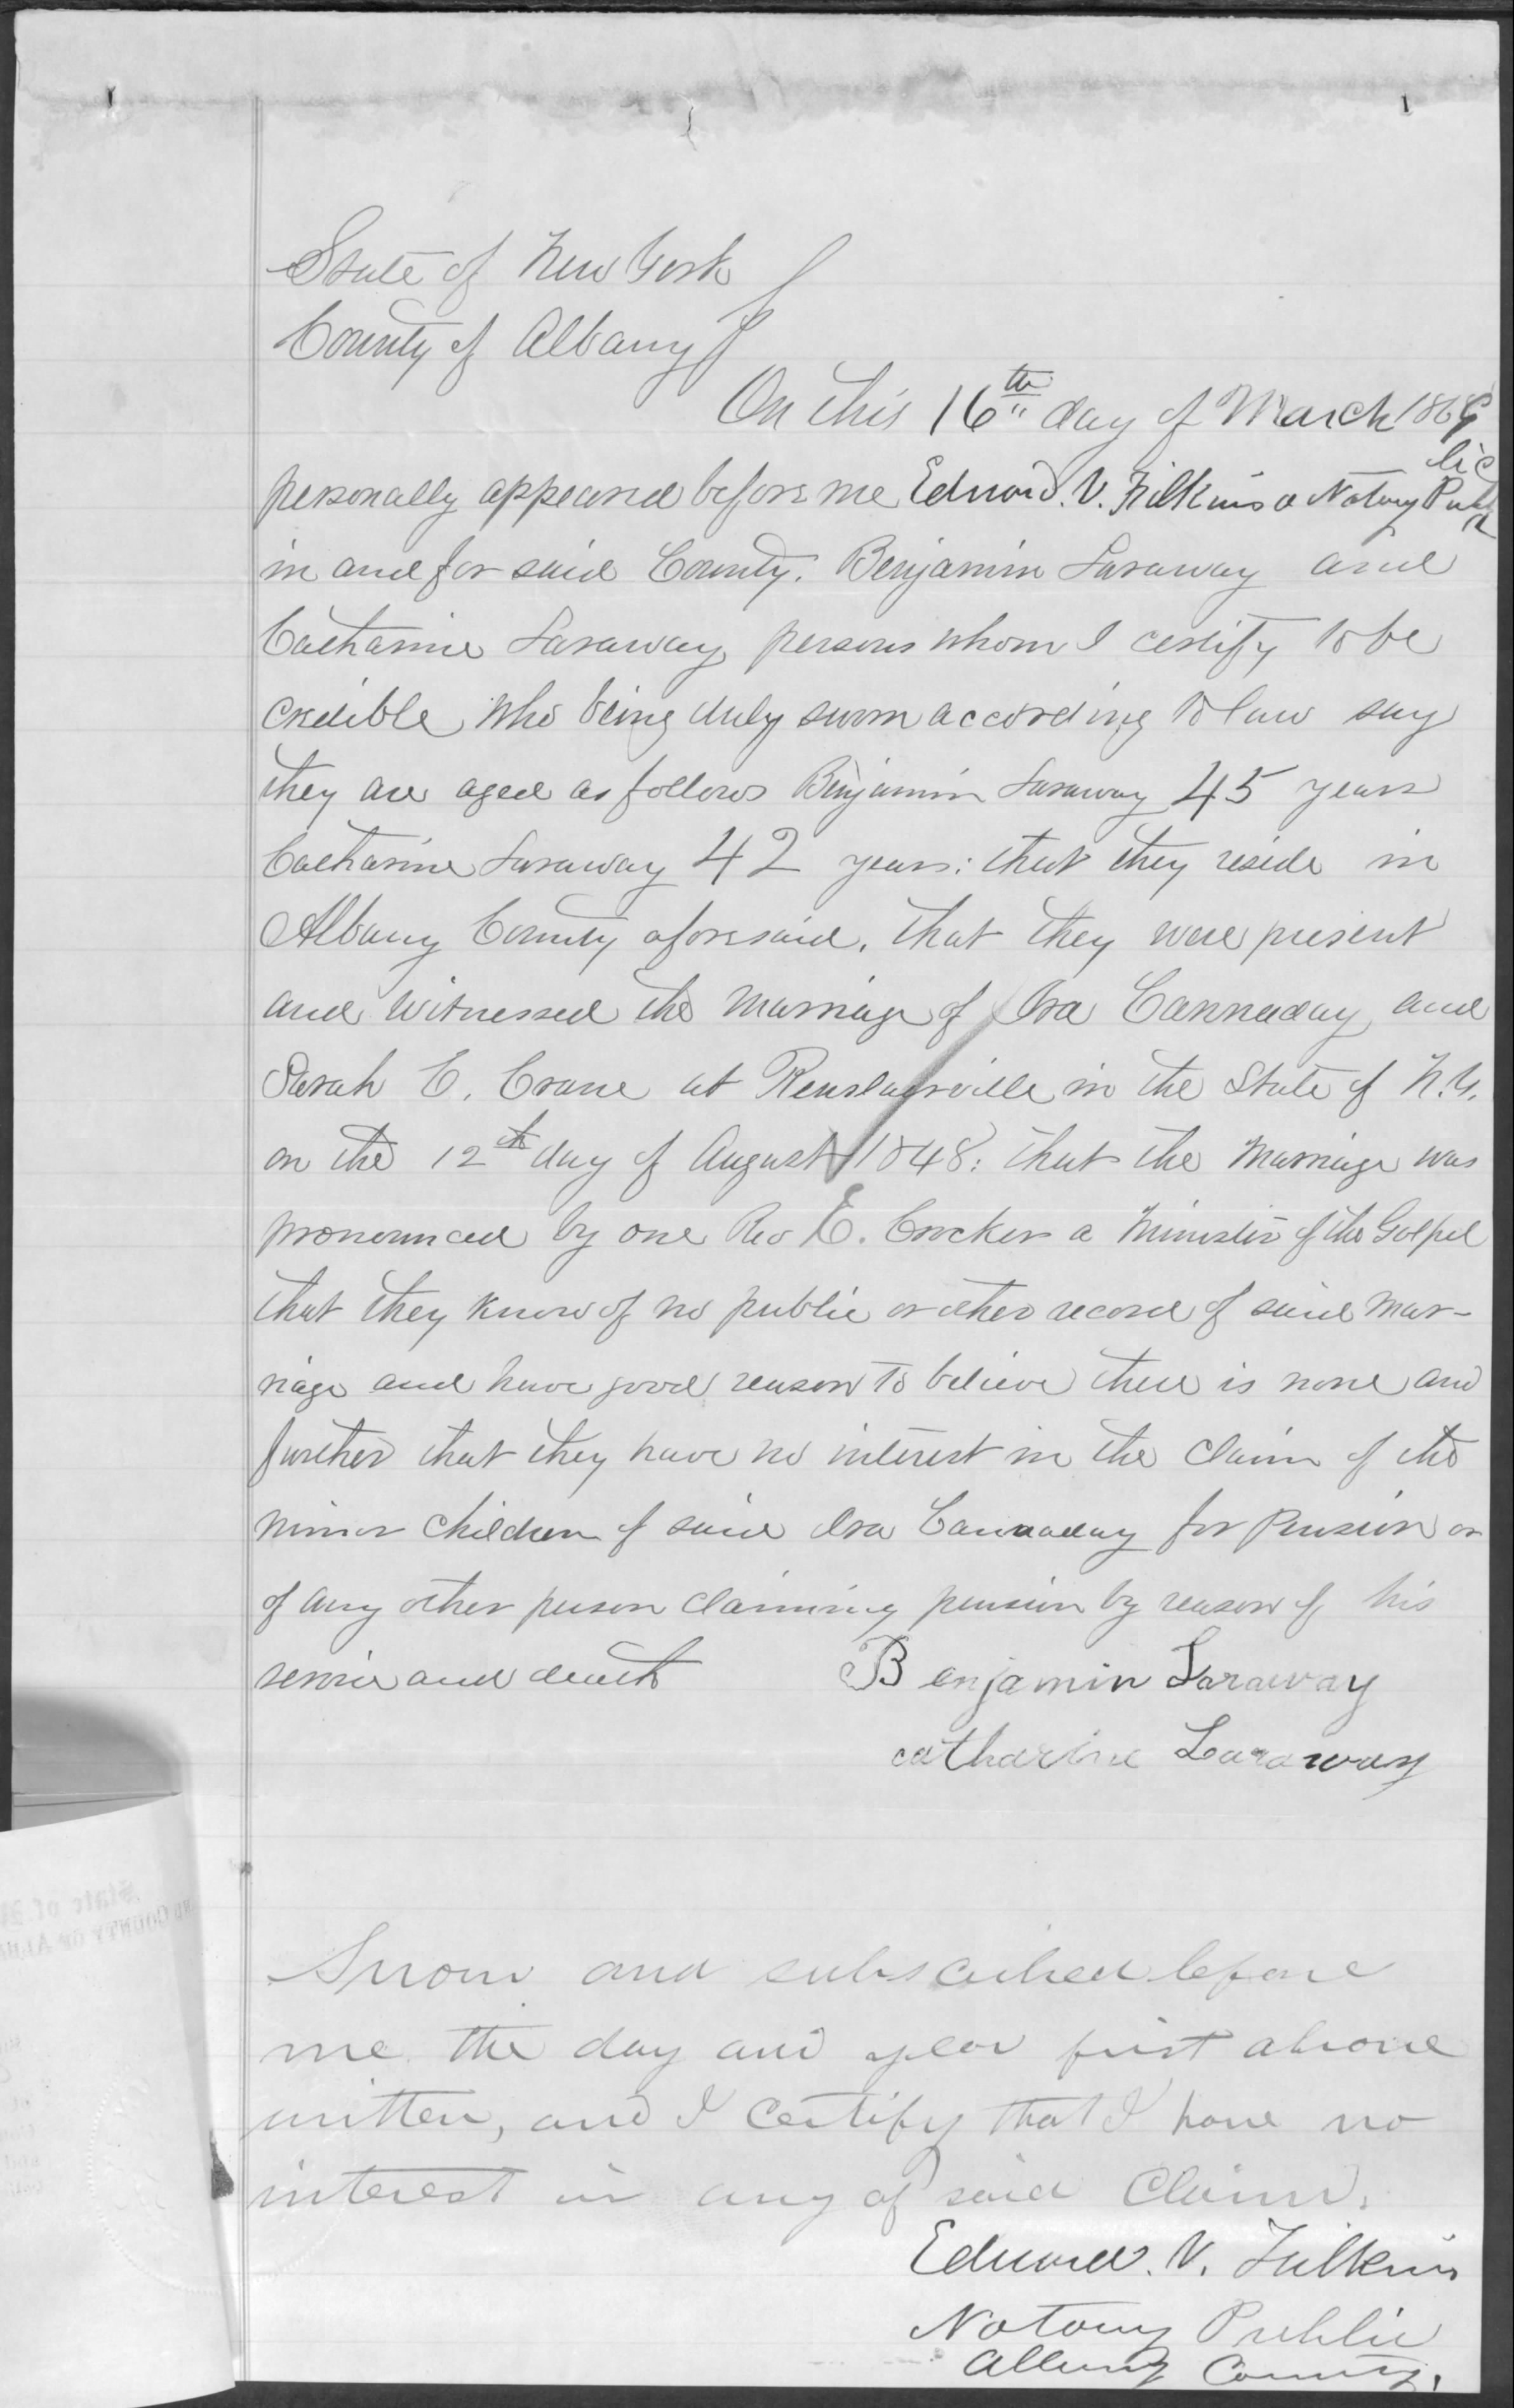 State of New York
County of Albany
On this 16th day of March 1869
personally appeared before me Edward. V. Filkins a Notary Public
in and for said County. Benjamin Laraway and
Catharine Laraway persons whom I certify to be
credible who being duly sworn according to law say
they are aged as follows Benjamin Laraway 45 years
Catharine Laraway 42 years: that they reside in
Albany County aforesaid. that they were present
and witnessed the marriage of Ira Cannaday and
Sarah C. Crane at Renslaerville in the State of N.Y.
on the 12th day of August 1848: that the marriage was
pronounced by one Rev E. Crocker a Minister of the Gospel
that they know of no public or other record of said mar-
riage and have good reason to believe there is none and
further that they have no interest in the claim of the
minor children of said Ira Cannaday for Pension or
of any other person claiming pension by reason of his
service and death
Benjamin Laraway
catharine Laraway
Sworn and subscribed before
me the day and year first above
written, and I certify that I have no
interest in any of said Claim.
Edward. V. Filkins
Notary Public
Albany County.